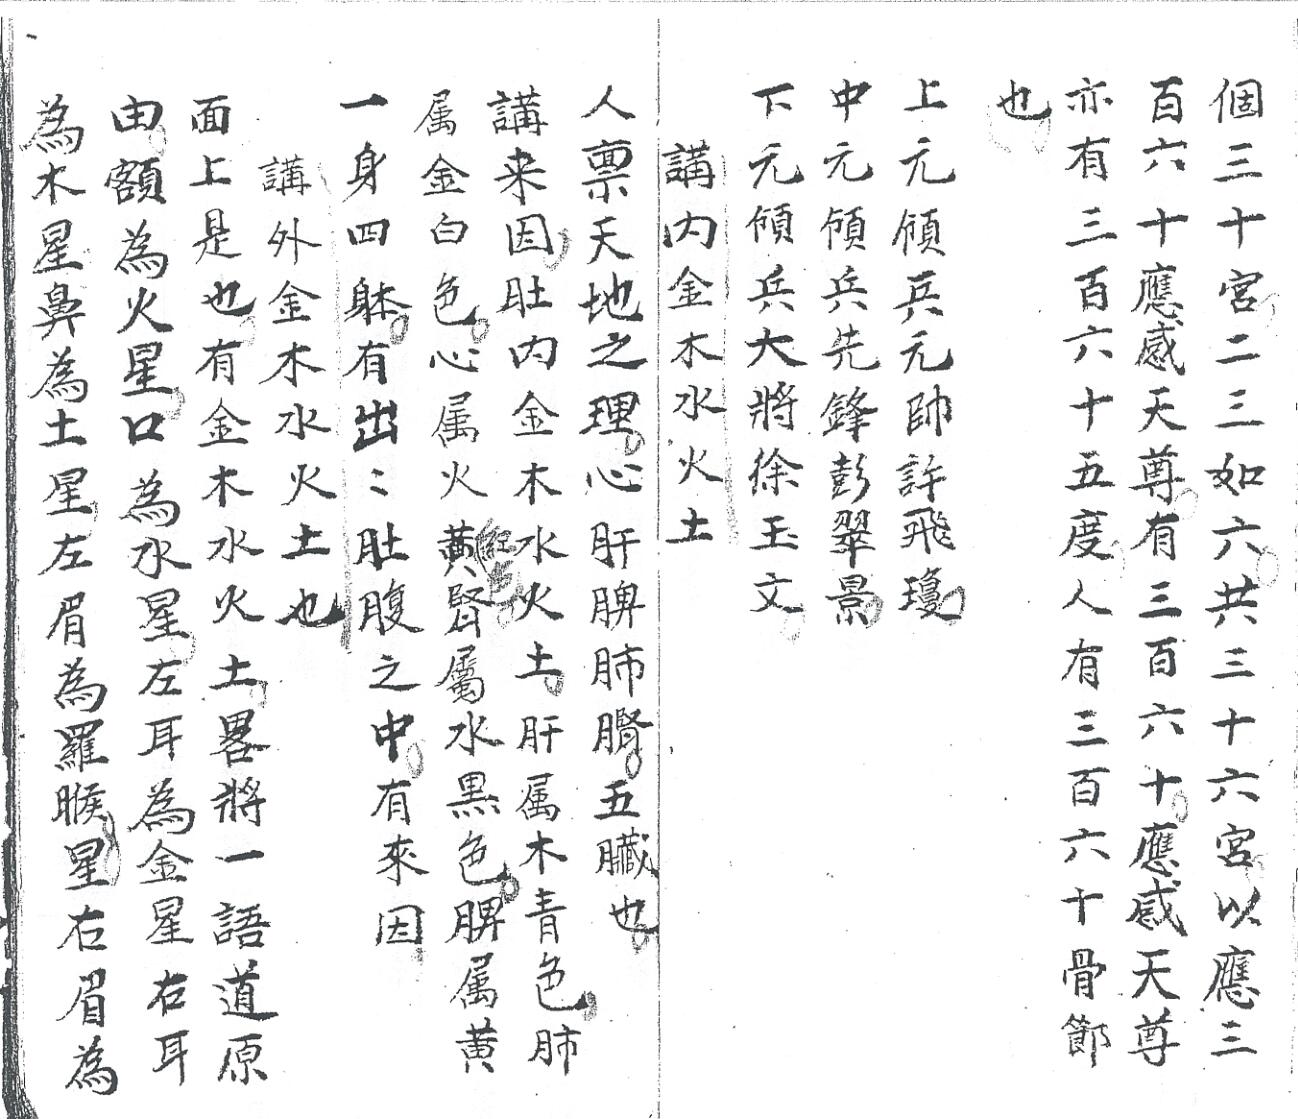 個三十宮二三如六共三十六宮以應三
百六十應感天尊有三百六十應感天尊
亦有三百六十五度人有三百六十骨節
也
上元領兵元帥許飛瓊
中元領兵先鋒彭翠景
下元領兵大將徐玉文
講内金木水火土
人禀天地之理心肝脾肺腎五臟也
講来因肚内金木水火土肝属木青色肺
属金白色心属火黄腎屬水黒色脾属黄
紅色
一身四躰有出〻肚腹之中有來因
講外金木水火土也
面上是也有金木水火土畧將一語道原
由額為火星口為水星左耳為金星右耳
為木星鼻為土星左眉為羅睺星右眉為